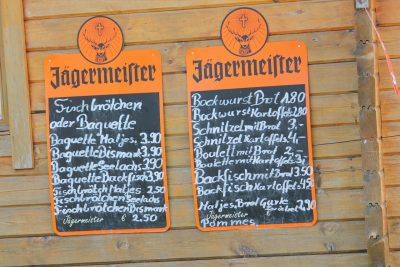 Jägermeister
Fischbrötchen
oder Baguette
Baguette Matjes, 3.90
Baguette Bismark 3.90
Baguette Seelachs 3.90
Baguette Backfisch 3.90
Fischbrötch Matjes 2.50
Fischbrötchen Seelachs
Fischbrötchen Bismark
Jägermeister € 2.50
Jägermeister
Bockwurst Brot 1.80
Bockwurst Kartoffels
Schnitzel mit Brot 3.-
Schnitzel Kartoffels 4.-
Boulett mit Brot 2.-
Boulette mit Kartoffels
Backfisch mit Brot
Backfisch Kartoffels
Matjes, Brot Gurke
Jägermeister
Pommes